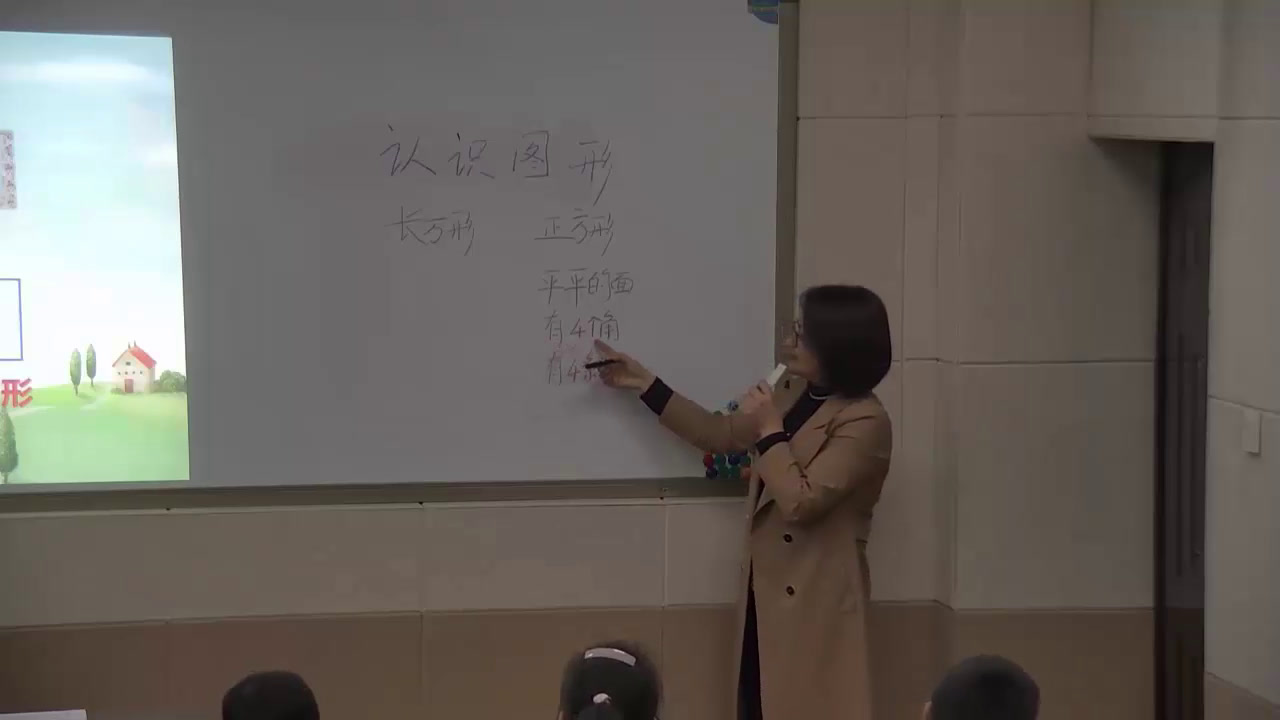 认识图形
长方形 正方形
平平的面
有4个角
有4条
形